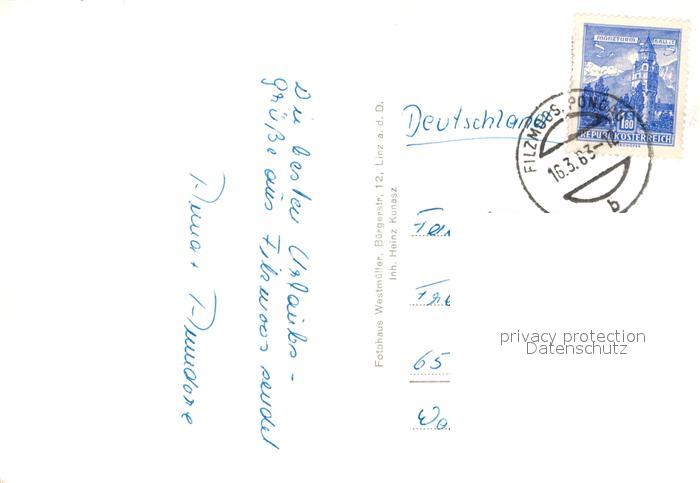 Die besten Urlaubs-
grüße aus Filzmoos sendet
Fotohaus Westmüller, Bürgerstr. 12, Linz a. d. D.
Inh. Heinz Kunasz
Deutschland
MÜNZTURM HALL I/T
1.80
REPUBLIK ÖSTERREICH
FILZMOOS, PONGAU
16.3.63-12
b
Fam
Fre
65
Wo
privacy protection
Datenschutz